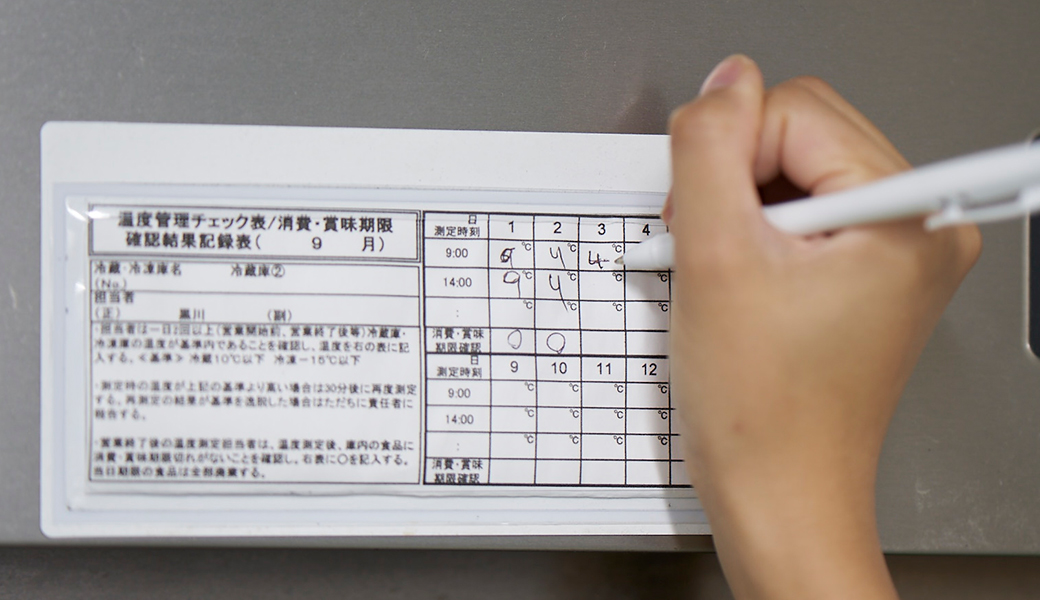 温度管理チェック表/消費・賞味期限
確認結果記録表( 9 月)
冷蔵・冷凍庫名 冷蔵庫②
(No.)
担当者
(正) 黒川 (副)
・担当者は一日2回以上(営業開始前、営業終了後等)冷蔵庫・
冷凍庫の温度が基準内であることを確認し、温度を右の表に記
入する。<基準> 冷蔵10℃以下 冷凍-15℃以下
・測定時の温度が上記の基準より高い場合は30分後に再度測定
する。再測定の結果が基準を逸脱した場合はただちに責任者に
報告する。
・営業終了後の温度測定担当者は、温度測定後、庫内の食品に
消費・賞味期限切れがないことを確認し、右表に○を記入する。
当日期限の食品は全部廃棄する。
日
測定時刻 1 2 3 4
9:00 ℃ 4 ℃ 4 ℃
14:00 9 ℃ 4 ℃ ℃ ℃
: ℃ ℃ ℃ ℃
消費・賞味
期限確認 ○ ○
日
測定時刻 9 10 11 12
9:00 ℃ ℃ ℃ ℃
14:00 ℃ ℃ ℃ ℃
: ℃ ℃ ℃ ℃
消費・賞味
期限確認